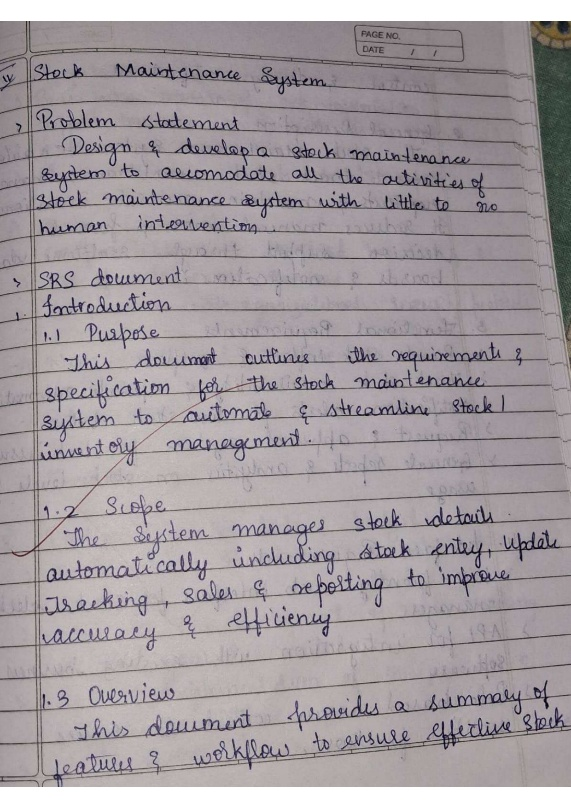 PAGE NO.
DATE / /
Stock Maintenance System
> Problem statement
Design & develop a stock maintenance
system to accomodate all the activities of
stock maintenance system with little to no
human intervention
> SRS document
1. Introduction
1.1 Purpose
This document outlines the requirements &
specification for the stock maintenance
system to automate & streamline stock /
inventory management.
1.2 Scope
The system manages stock details
automatically including stock entry, update
tracking, sales & reporting to improve
accuracy & efficiency
1.3 Overview
This document provides a summary of
features & workflow to ensure effective stock